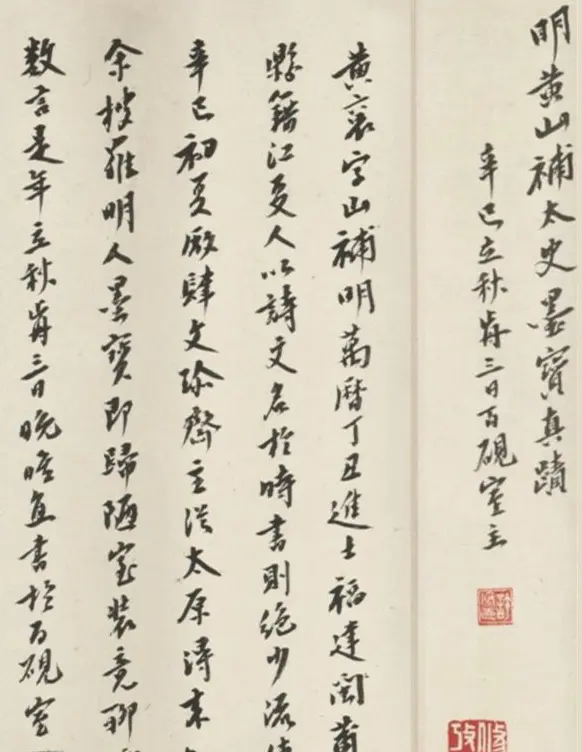 明黄山補太史墨寶真蹟
辛巳立秋前三日百硯室主
黄衮字山補明萬曆丁丑進士福建閩莆
縣籍江夏人以詩文名於時書則絶少流傳
辛巳初夏廠肆文珍齋主從太原得來
余搜羅明人墨寶即歸陋室裝竟聊
數言是年立秋前三日晚唯直書於百硯室